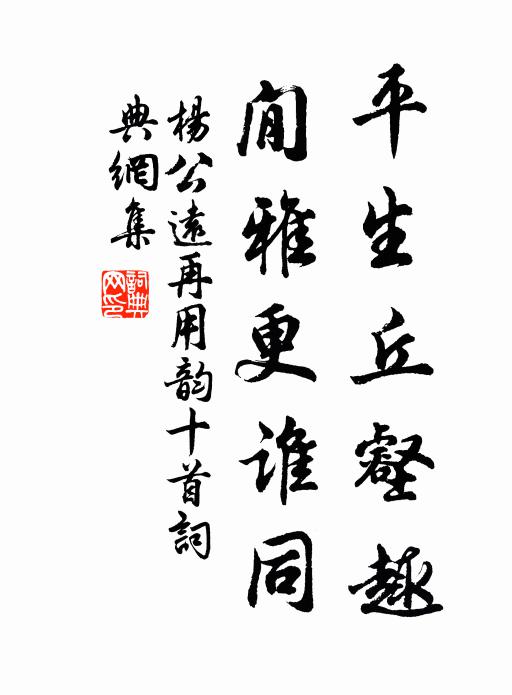 平生丘壑趣
閒雅更誰同
楊公遠再用韵十首詞
典網集
詞典網印